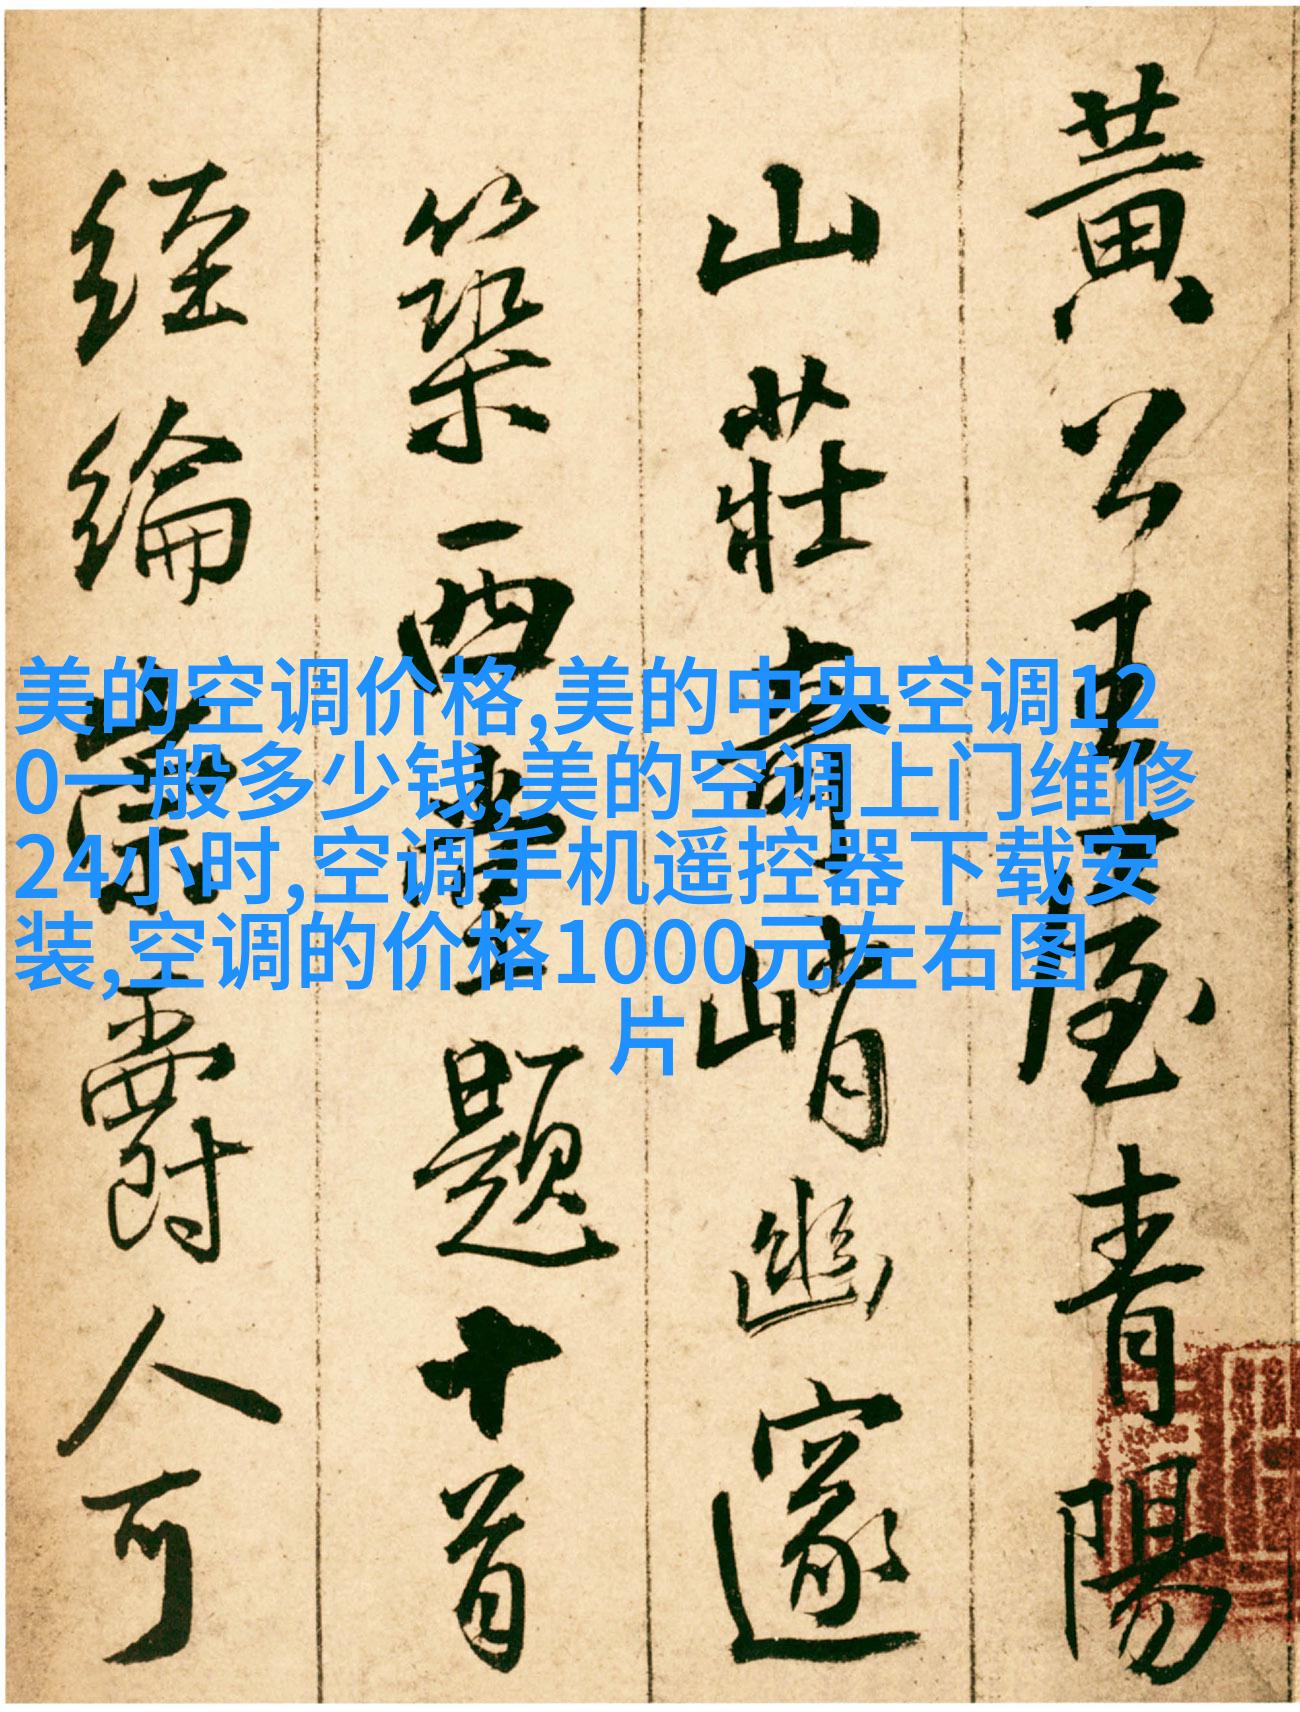 美的空调价格,美的中央空调12
0一般多少钱,美的空调上门维修
24小时,空调手机遥控器下载安
装,空调的价格1000元左右图
片
黃公王屋青陽
山莊奇峭幽邃
築西題十首
經綸崇爵人可